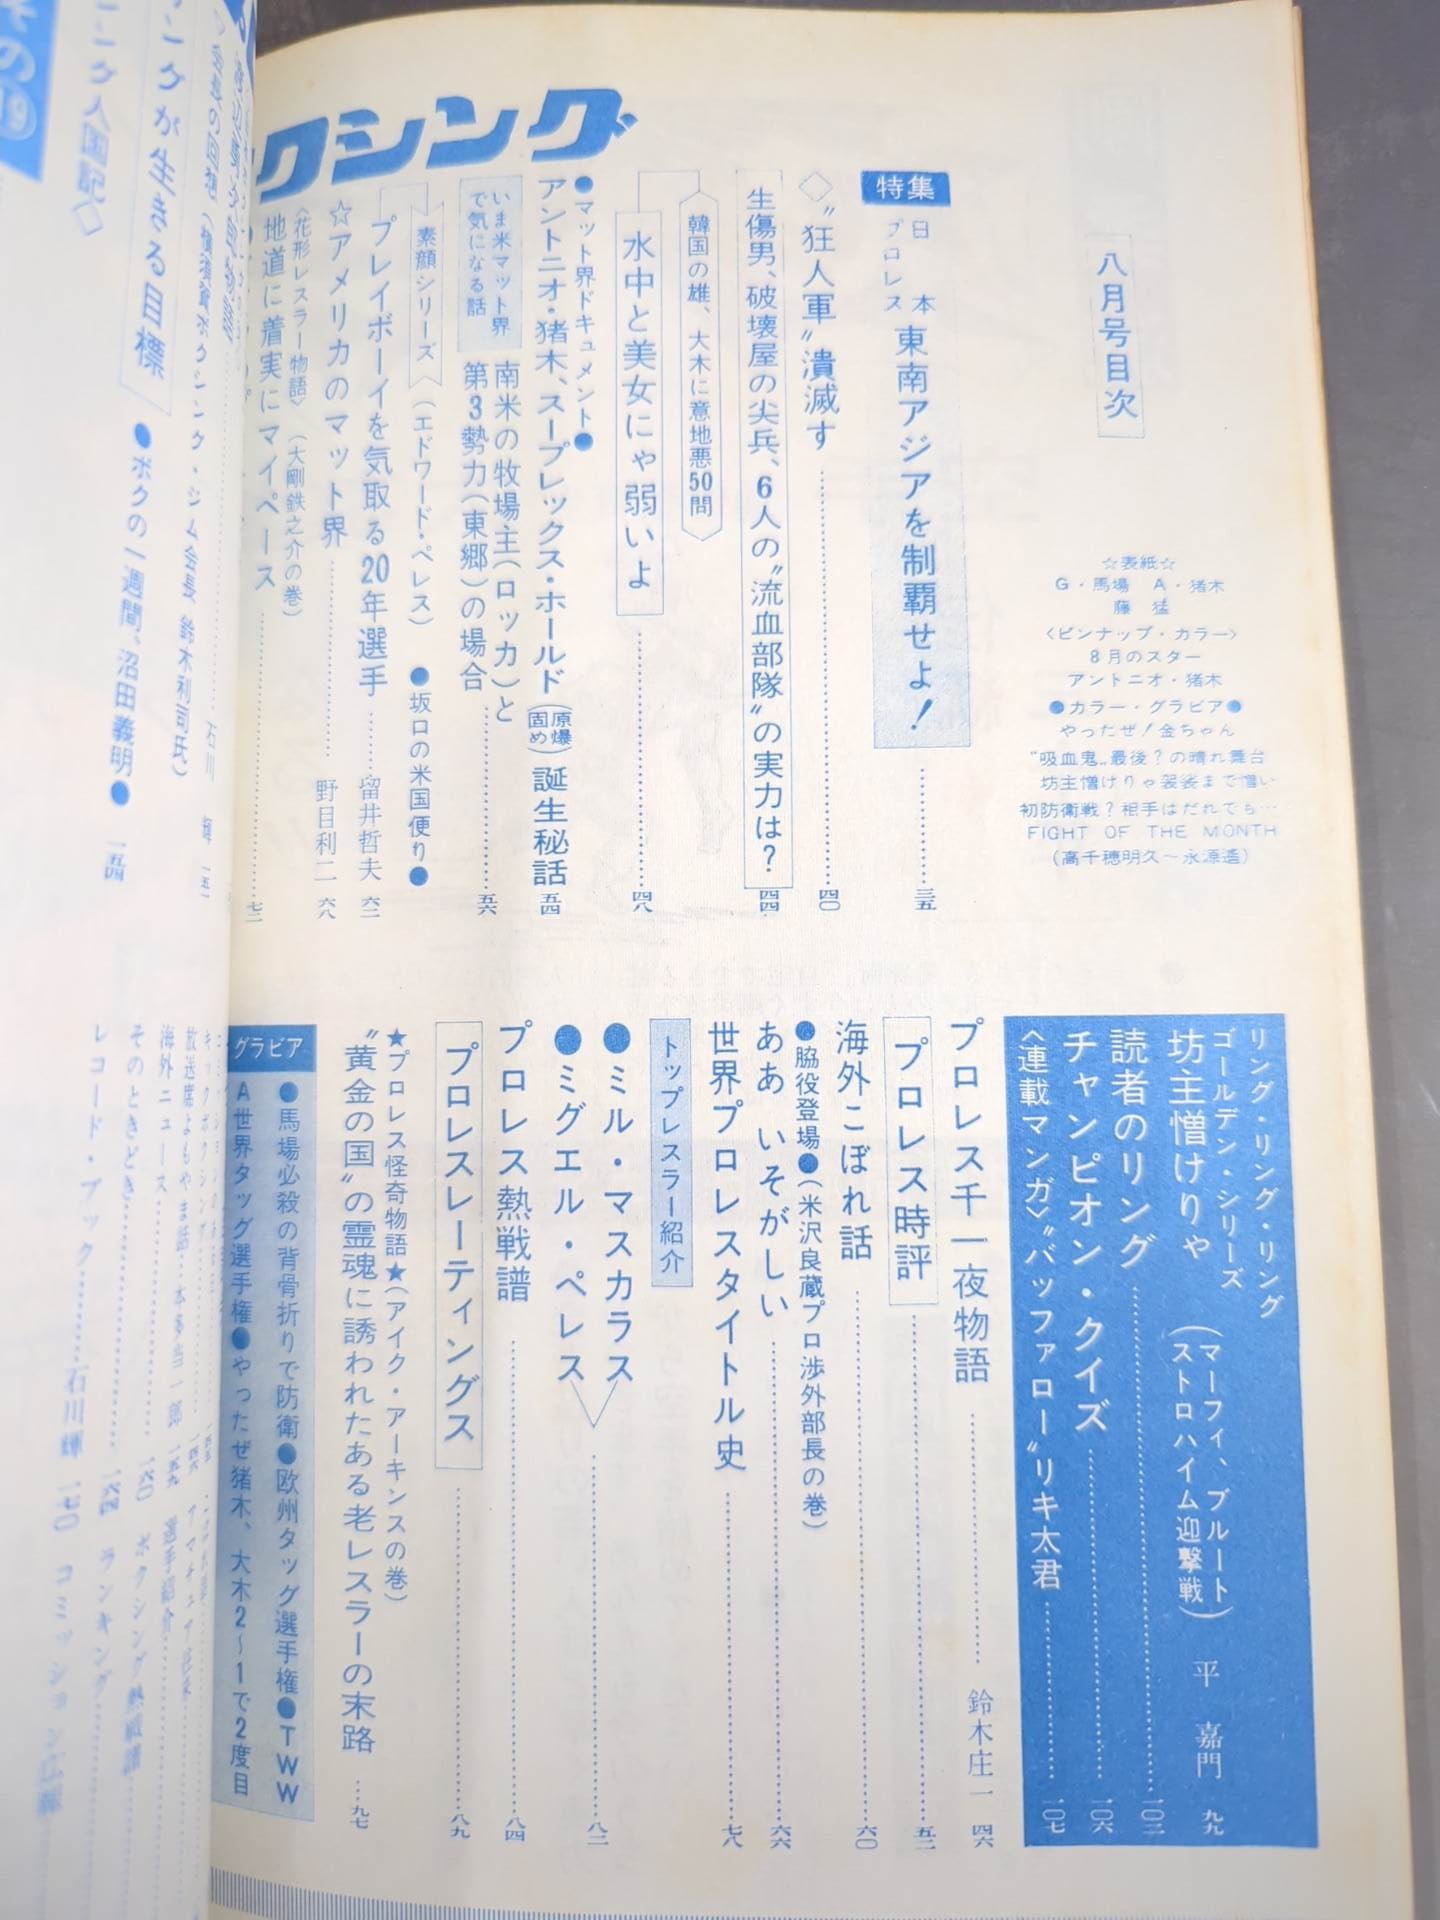 クシング
八月号目次
☆表紙☆
G・馬場 A・猪木
藤 猛
〈ピンナップ・カラー〉
8月のスター
アントニオ・猪木
●カラー・グラビア●
やったぜ!金ちゃん
“吸血鬼”最後?の晴れ舞台
坊主憎けりゃ袈裟まで憎い
初防衛戦?相手はだれでも…
FIGHT OF THE MONTH
(高千穂明久〜永源遙)
特集
日本プロレス 東南アジアを制覇せよ! 三五
◇“狂人軍”潰滅す 四〇
生傷男、破壊屋の尖兵、6人の“流血部隊”の実力は? 四四
韓国の雄、大木に意地悪50問
水中と美女にゃ弱いよ 四八
●マット界ドキュメント●
アントニオ・猪木、スープレックス・ホールド(原爆固め)誕生秘話 五四
いま米マット界で気になる話
南米の牧場主(ロッカ)と
第3勢力(東郷)の場合 五六
素顔シリーズ (エドワード・ペレス) ●坂口の米国便り●
プレイボーイを気取る20年選手 留井哲夫 六二
☆アメリカのマット界 野目利二 六八
〈花形レスラー物語〉 (大剛鉄之介の巻)
地道に着実にマイペース 七二
リング・リング・リング
ゴールデン・シリーズ
坊主憎けりゃ (マーフィ、ブルート ストロハイム迎撃戦) 平 嘉門 九九
読者のリング 一〇二
チャンピオン・クイズ 一〇六
〈連載マンガ〉“バッファロー”リキ太君 一〇七
プロレス千一夜物語 鈴木庄一 四六
プロレス時評 五二
海外こぼれ話 六〇
●脇役登場●(米沢良蔵プロ渉外部長の巻)
ああ いそがしい 六六
世界プロレスタイトル史 七八
トップレスラー紹介
●ミル・マスカラス
●ミグエル・ペレス 八二
プロレス熱戦譜 八四
プロレスレーティングス 八九
★プロレス怪奇物語★(アイク・アーキンスの巻)
“黄金の国”の霊魂に誘われたある老レスラーの末路 九七
グラビア
●馬場必殺の背骨折りで防衛●欧州タッグ選手権●TWW
A世界タッグ選手権●やったぜ猪木、大木2〜1で2度目
その⑲
ング人国記◇
ングが生きる目標 ●ボクの一週間、沼田義明● 一五四
会長の回想(横須賀ボクシング・ジム会長 鈴木利司氏)
石川 輝 一五一
キックボクシング 一四六
放送席よもやま話 本多当一郎 一五九
海外ニュース
選手紹介
そのときどき 一六〇
ボクシング熱戦譜
一六四 ランキング
レコード・ブック 石川輝 一七〇